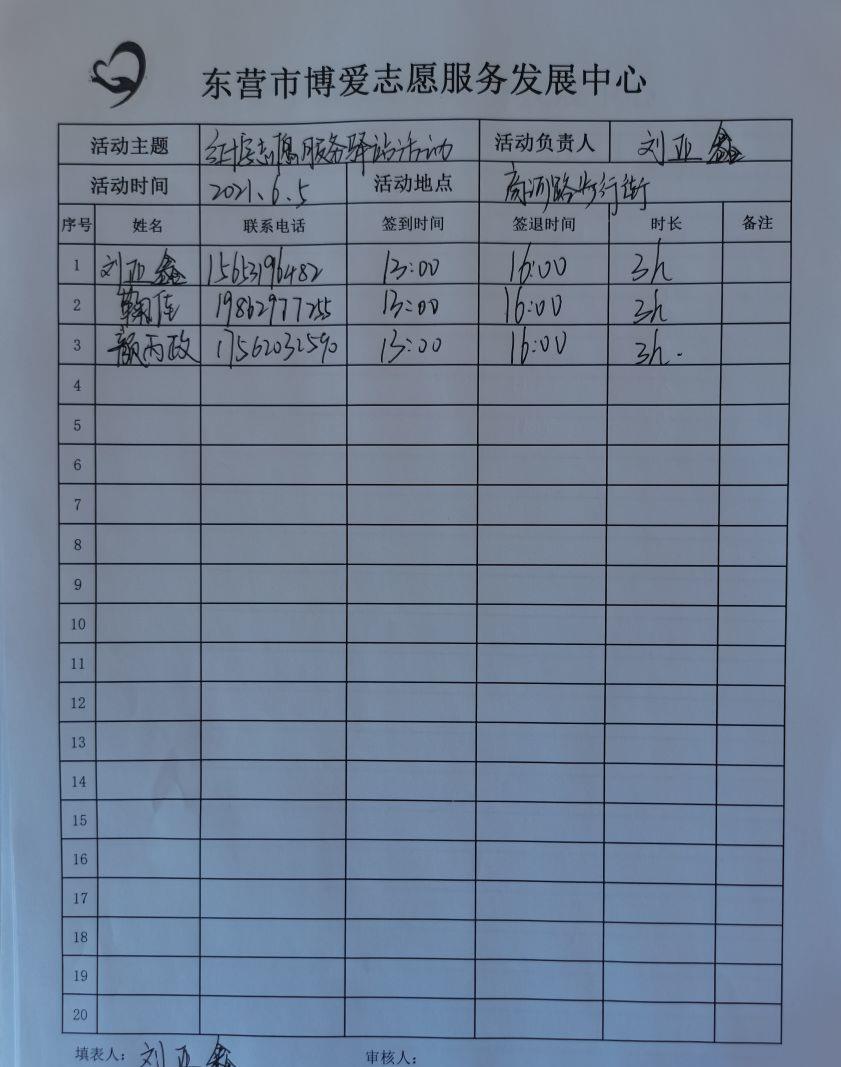 东营市博爱志愿服务发展中心
活动主题 红十字志愿服务驿站活动 活动负责人 刘亚鑫
活动时间 2021.6.5 活动地点 商河路步行街
序号 姓名 联系电话 签到时间 签退时间 时长 备注
1 刘亚鑫 15653196482 13:00 16:00 3h
2 鞠佳 19862977255 13:00 16:00 3h
3 颜丙政 17562032590 13:00 16:00 3h.
4
5
6
7
8
9
10
11
12
13
14
15
16
17
18
19
20
填表人： 刘亚鑫 审核人：